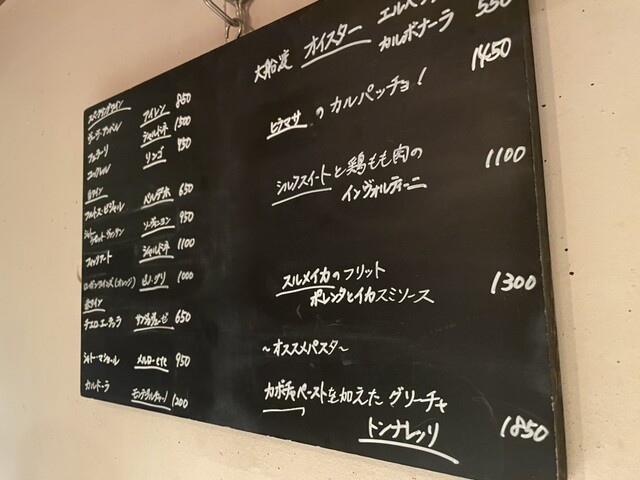 スパークリングワイン
アイレン 850
シャルドネ 1300
フェラーリ リンゴ 750
白ワイン
ベルデホ 650
ソーヴィニヨン 950
シャルドネ 1100
(オレンジ) ピノ・グリ 1000
赤ワイン
サンジョヴェーゼ 650
メルロー etc 950
カルドーラ モンテプルチャーノ 1200
大船渡 オイスター
カルボナーラ 550
ヒラマサ のカルパッチョ! 1450
シルクスイートと鶏もも肉の 1100
インヴォルティーニ
スルメイカのフリット 1300
ポレンタとイカスミソース
~オススメパスタ~
カボチャペーストを加えた グリーチャ
トンナレッリ 1850